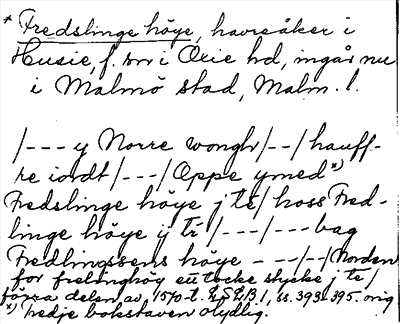 * Fredslinge höye, havreåker i
Husie, f. sn i Oxie hd, ingår nu
i Malmö stad, Malm. l.
/--- y Norre wongh/--/hauff-
re iordt/---/Oppe ymed*)
Fredslinge höye j te/ hoss Fred-
linge höye ij tr/---/---bag
Fredlingssens höye - --/--/Norden
for frelinghöy en tocke stycke j te/
förra delen av 1570 t. LSLB 1, ss. 393-395. orig
*) tredje bokstaven otydlig.